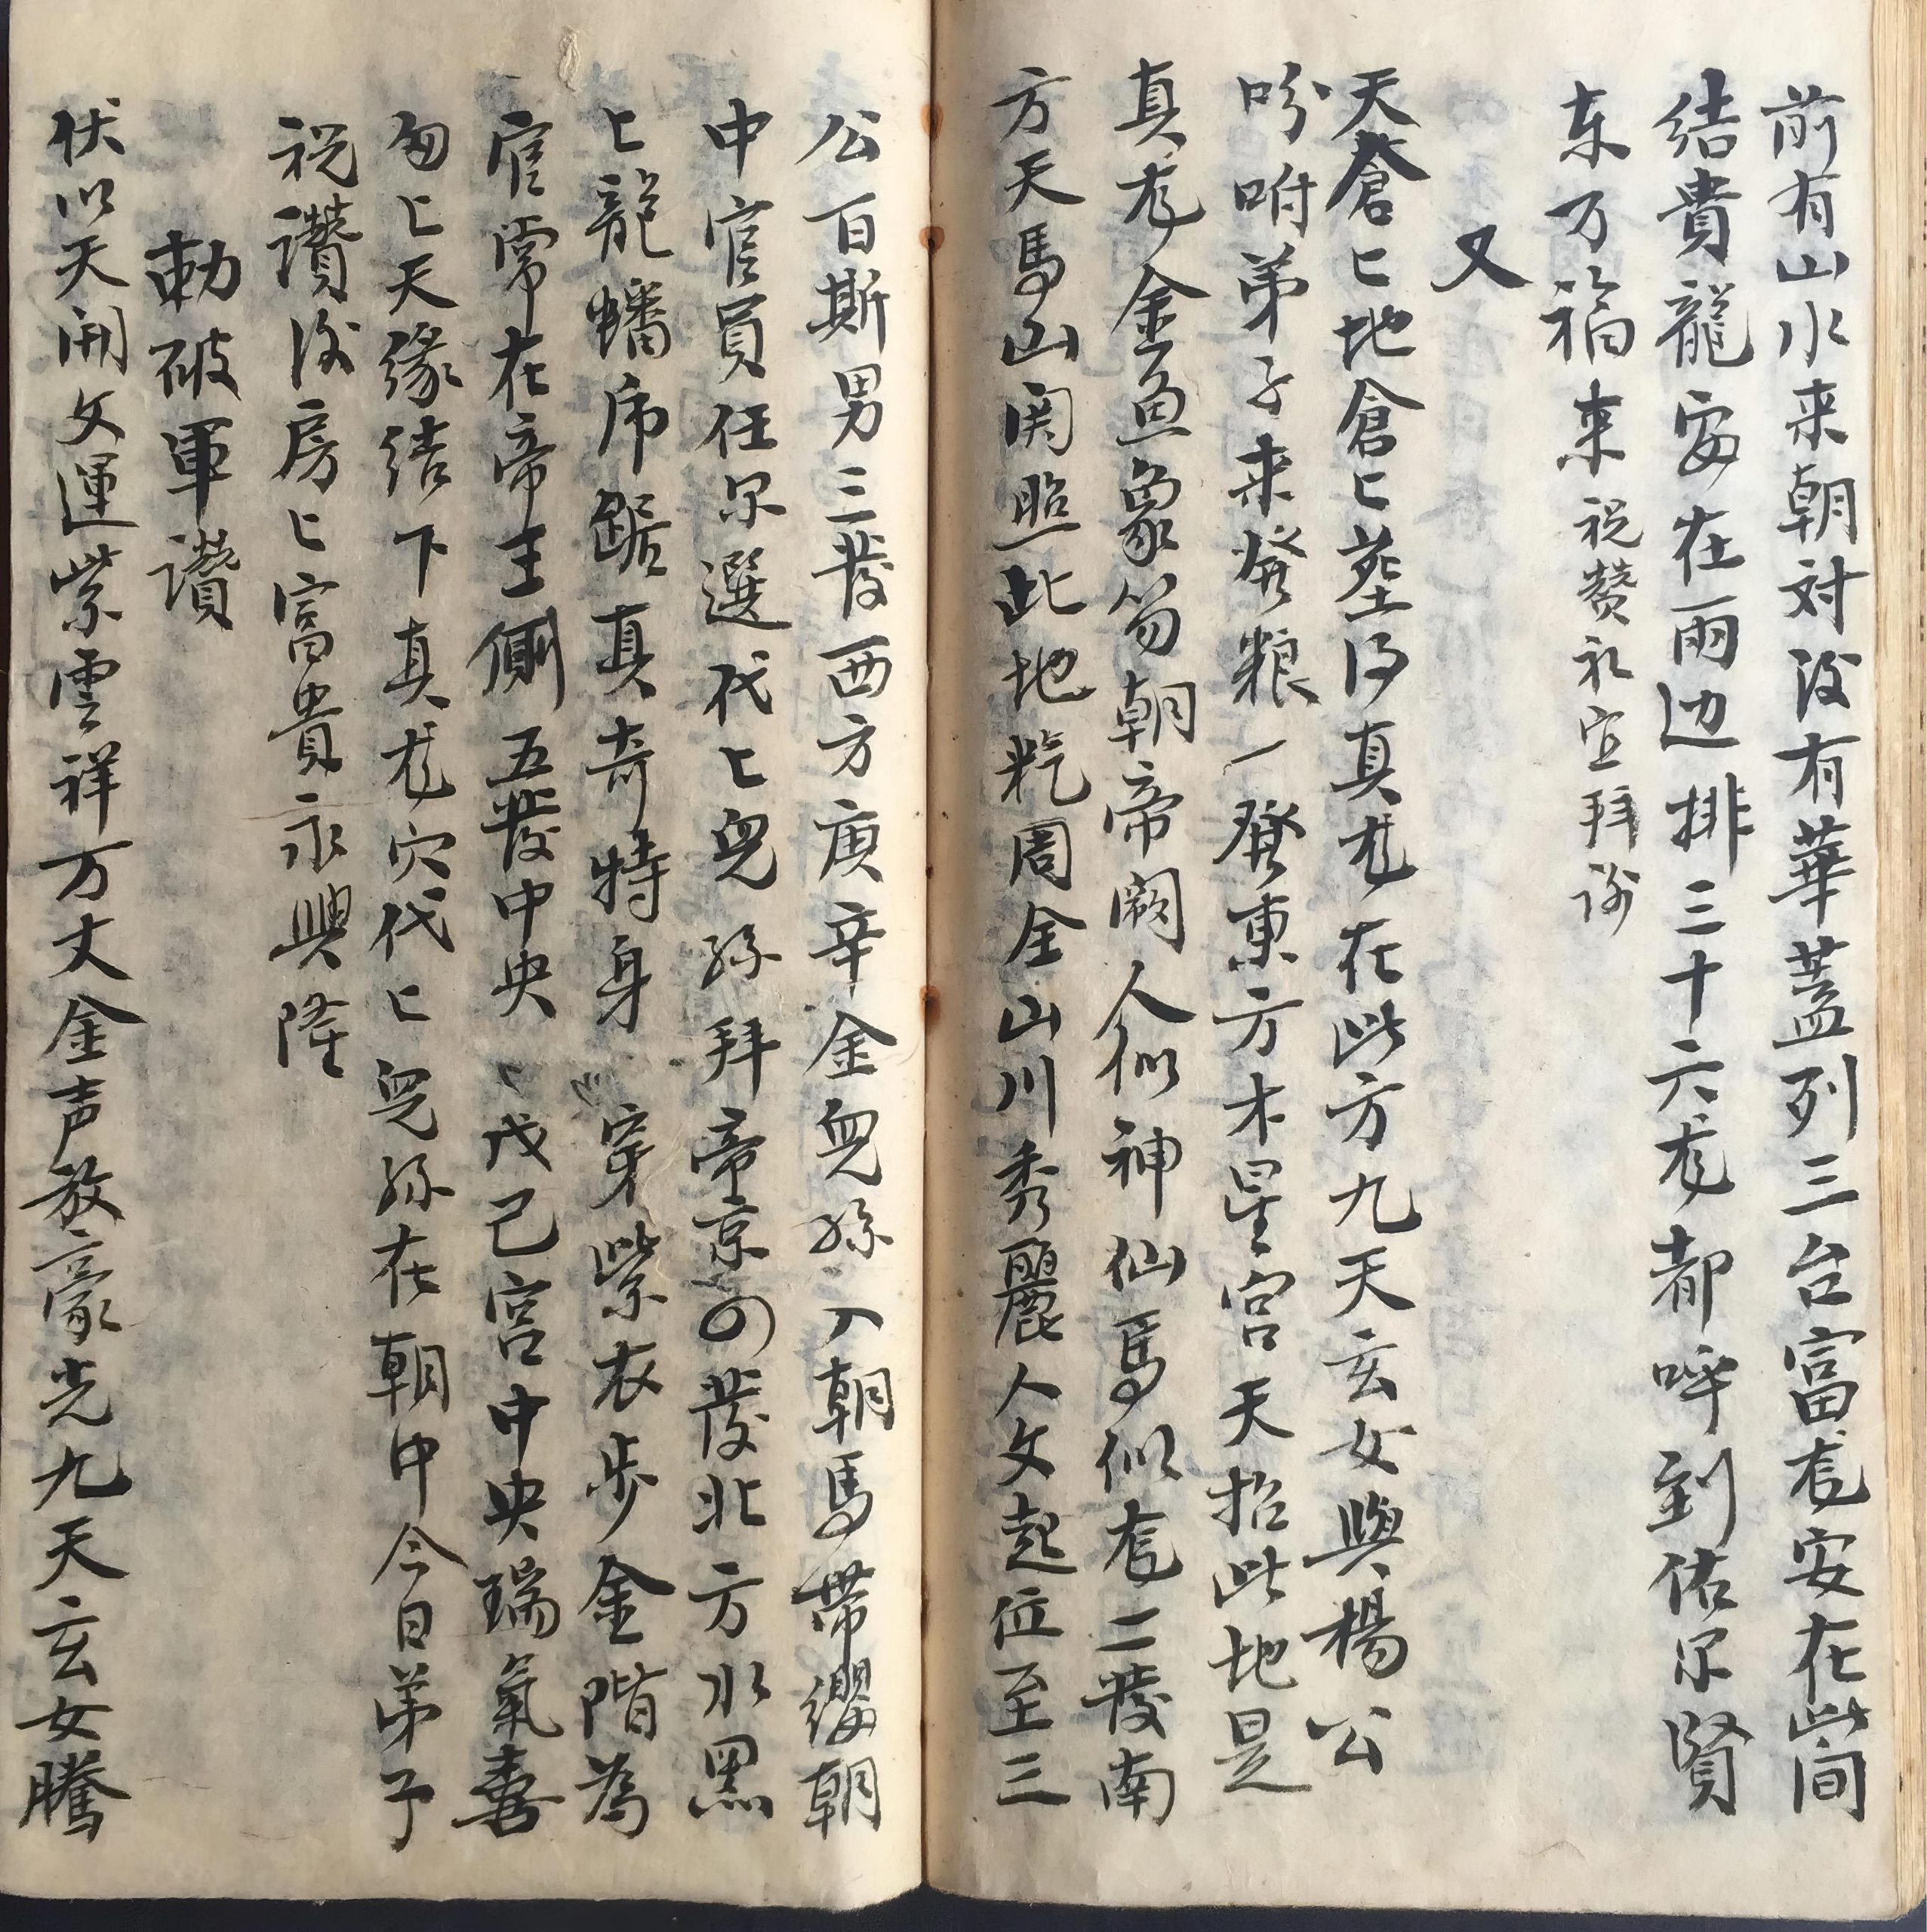 前有山水来朝対後有華蓋列三台富龙安在此间
结貴龍安在両边排三十六龙都呼到佑尔賢
东万福来祝赞礼宜拜谢
又
天倉匕地倉匕塟得真龙在此方九天玄女與楊公
吩咐弟子来発粮一發東方木星宮天招此地是
真龙金魚象笏朝帝阙人似神仙馬似龙二發南
方天馬山関照此地龍周全山川秀麗人文起位至三
公百斯男三發西方庚辛金兒孫入朝馬帶纓朝
中官員任尔選代匕兒孫拜帝京四發北方水黑
匕龍蟠虎踞真奇特身穿紫衣步金階為
官常在帝王側五發中央戊己宮中央瑞氣喜
匆匕天缘结下真龙穴代匕兒孫在朝中今日弟子
祝讚後房匕富貴永興隆
勅破軍讃
伏以天開文運紫雲祥万丈金声放豪光九天玄女騰